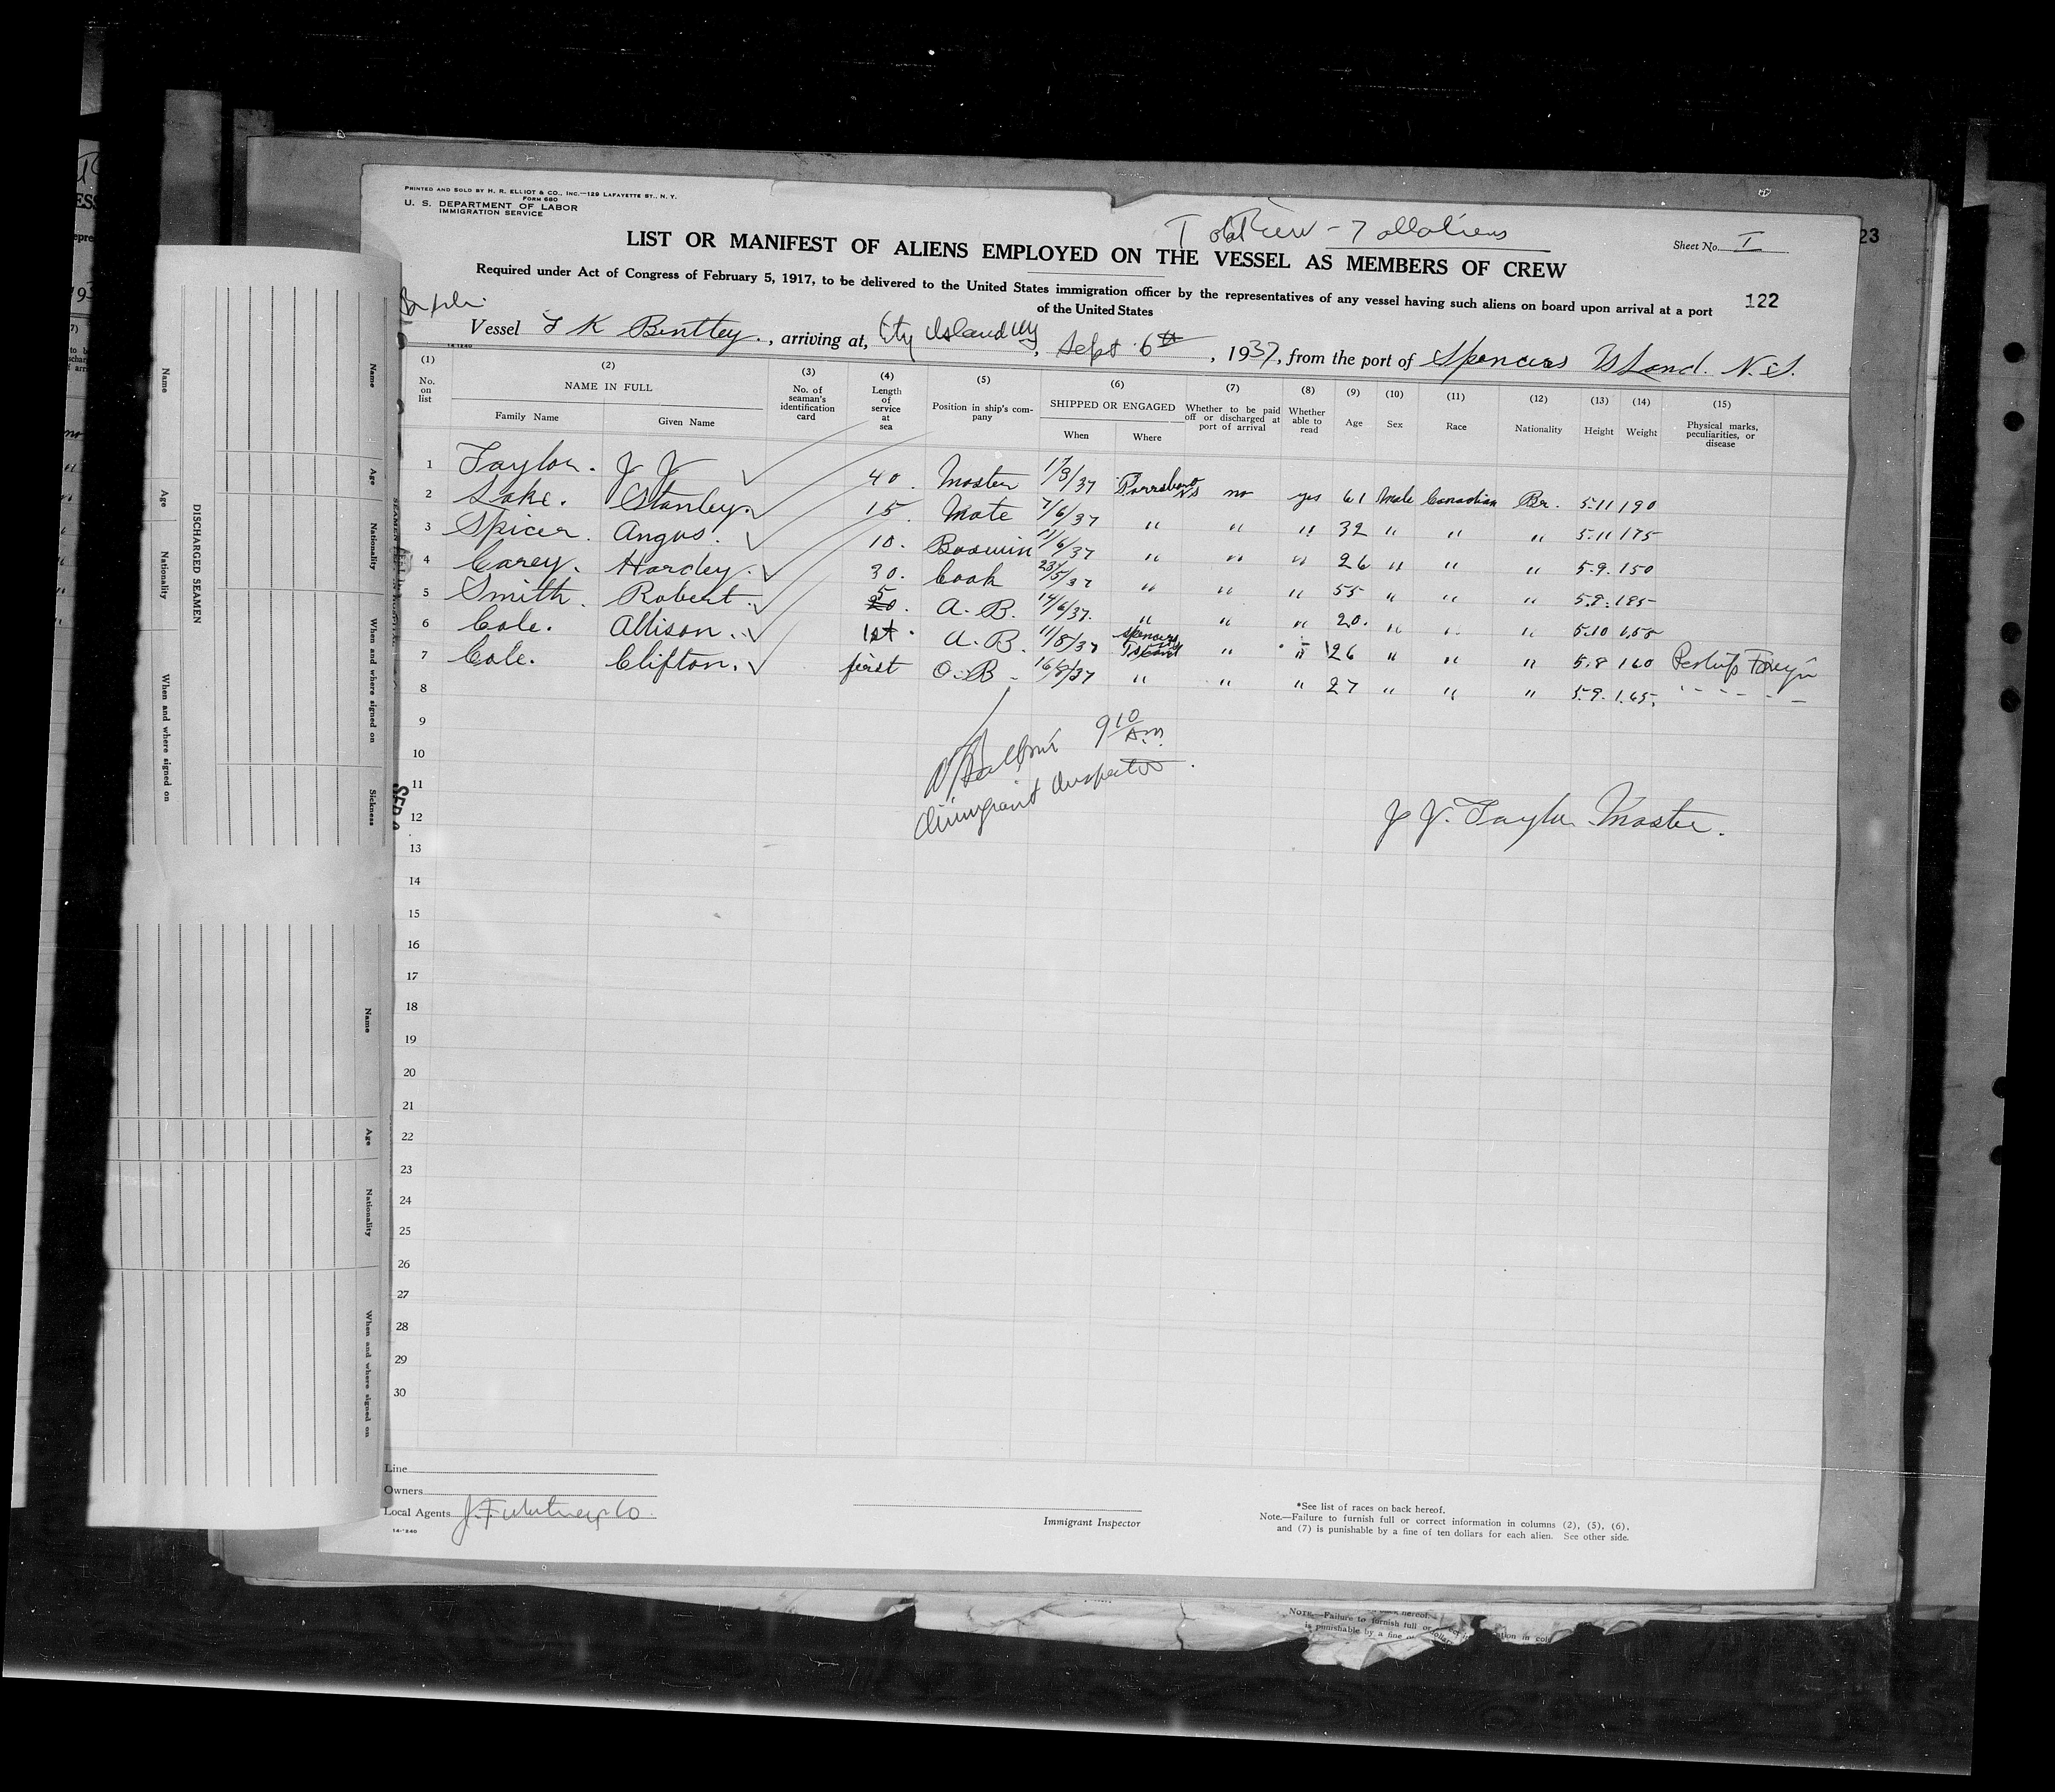 PRINTED AND SOLD BY H. R. ELLIOT & CO., INC.—129 LAFAYETTE ST., N. Y.
FORM 680
U. S. DEPARTMENT OF LABOR
IMMIGRATION SERVICE
Total Crew - 7 all aliens
Sheet No. I
LIST OR MANIFEST OF ALIENS EMPLOYED ON THE VESSEL AS MEMBERS OF CREW
Required under Act of Congress of February 5, 1917, to be delivered to the United States immigration officer by the representatives of any vessel having such aliens on board upon arrival at a port
of the United States
122
Vessel F K Bentley, arriving at, City Island NY, Sept 6th, 1937, from the port of Spencers Island. N.S.
(1) (2) (3) (4) (5) (6) (7) (8) (9) (10) (11) (12) (13) (14) (15)
No. on list NAME IN FULL Family Name Given Name No. of seaman's identification card Length of service at sea Position in ship's company SHIPPED OR ENGAGED When Where Whether to be paid off or discharged at port of arrival Whether able to read Age Sex Race Nationality Height Weight Physical marks, peculiarities, or disease
1 Taylor. J J 40. Master Parrsboro NS no yes 61 Male Canadian Br. 5.11 190
2 Lake. Stanley. 15. Mate 7/6/37 " " " 32 " " " 5.11 175
3 Spicer. Angus. 10. Boswin 11/6/37 " " " 26 " " " 5.9. 150
4 Carey. Hardey. 30. Cook 23/5/37 " " " 55 " " " 5.8. 185
5 Smith. Robert. 5 20. A. B. 14/6/37. " " " 20. " " " 5.10
6 Cole. Allison. 1st. A. B. 11/8/37 Spencers Island " " 26 " " " 5.8 160
7 Cole. Clifton. first O. B 16/8/37 " " " 27 " " " 5.9. 165.
8
9
10
11
12
13
14
15
16
17
18
19
20
21
22
23
24
25
26
27
28
29
30
9 10 Am.
Immigrant Inspector.
J J. Taylor Master.
Line
Owners
Local Agents
14-1240
Immigrant Inspector
*See list of races on back hereof.
Note.—Failure to furnish full or correct information in columns (2), (5), (6),
and (7) is punishable by a fine of ten dollars for each alien. See other side.
DISCHARGED SEAMEN
Name
Age
Nationality
When and where signed on
Name
Age
Nationality
When and where signed on
Sickness
Name
Age
Nationality
When and where signed on
23